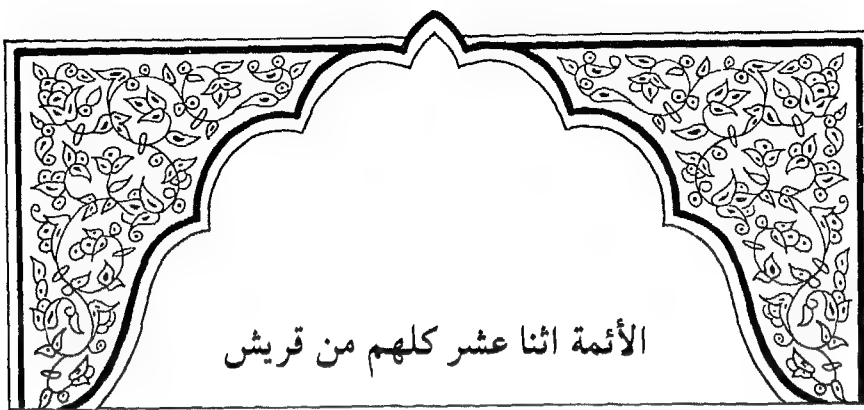 الأئمة اثنا عشر كلهم من قريش